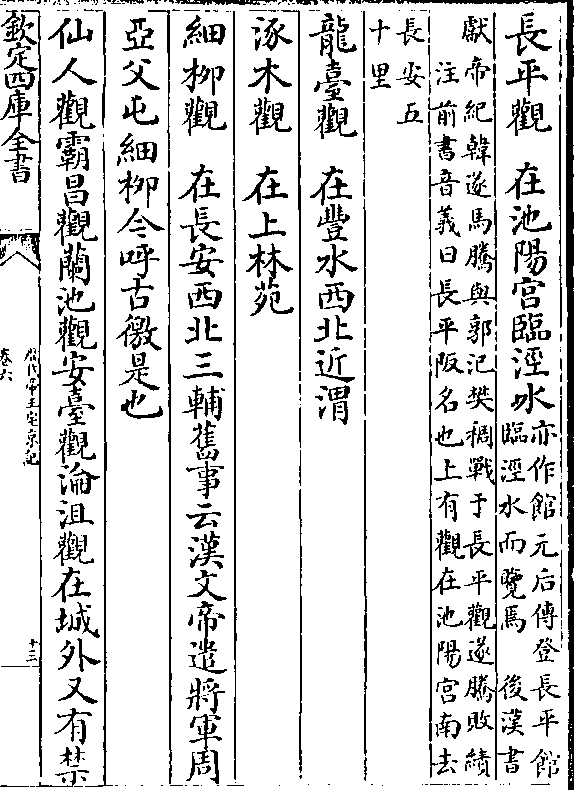 長平觀　在池陽宮臨涇水亦作館元后傳登長平館
臨涇水而覽焉　後漢書
獻帝紀韓遂馬騰與郭汜樊稠戰于長平觀遂騰敗績
注前書音義曰長平阪名也上有觀在池陽宮南去
長安五
十里
龍臺觀　在豐水西北近渭
涿木觀　在上林苑
細柳觀　在長安西北三輔舊事云漢文帝遣將軍周
亞父屯細柳今呼古徼是也
仙人觀霸昌觀蘭池觀安臺觀淪沮觀在城外又有禁
欽定四庫全書
歷代帝王宅京記
卷六
十三